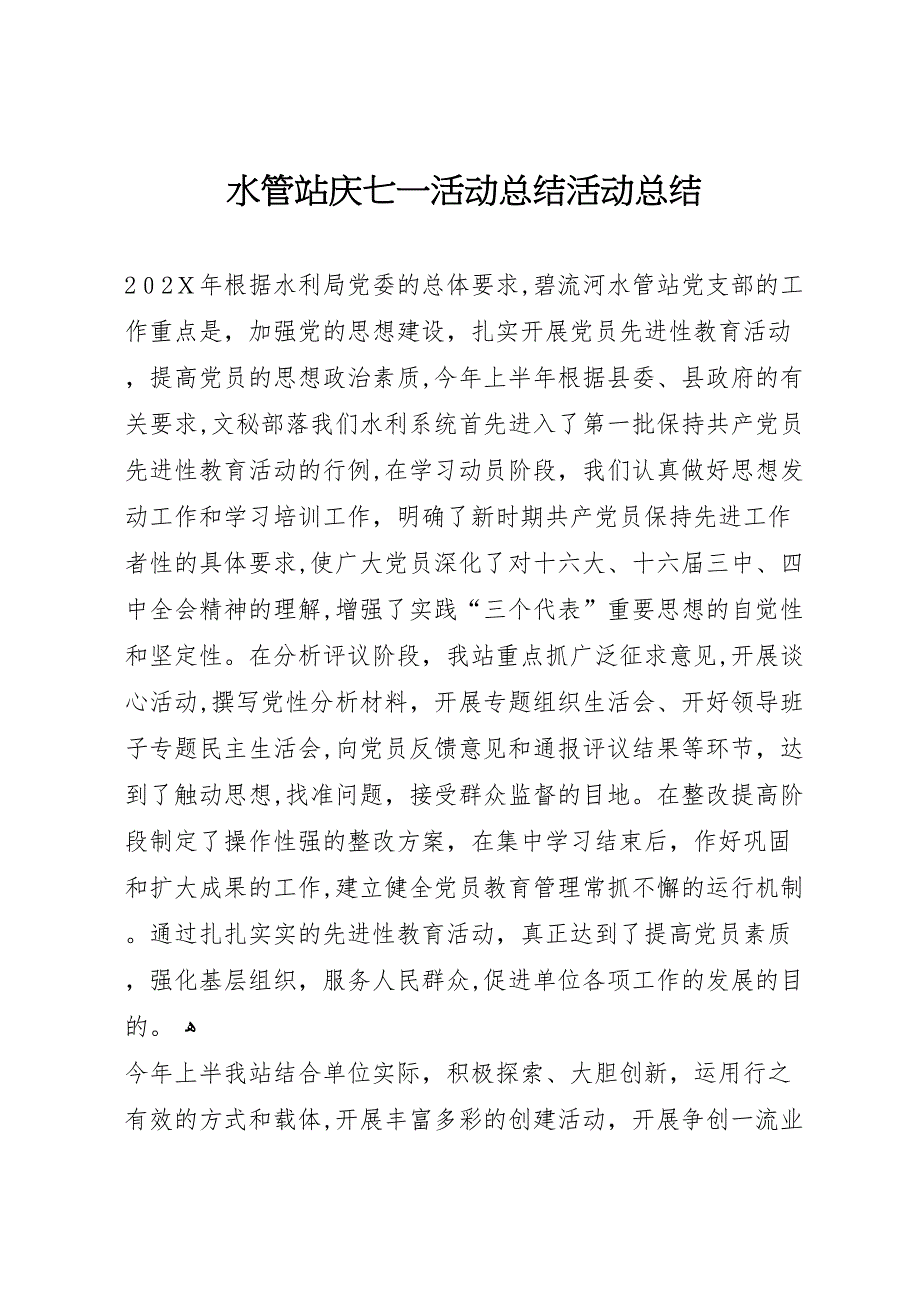 水管站庆七一活动总结活动总结
202X年根据水利局党委的总体要求,碧流河水管站党支部的工
作重点是，加强党的思想建设，扎实开展党员先进性教育活动
，提高党员的思想政治素质,今年上半年根据县委、县政府的有
关要求,文秘部落我们水利系统首先进入了第一批保持共产党员
先进性教育活动的行例,在学习动员阶段，我们认真做好思想发
动工作和学习培训工作，明确了新时期共产党员保持先进工作
者性的具体要求,使广大党员深化了对十六大、十六届三中、四
中全会精神的理解,增强了实践“三个代表”重要思想的自觉性
和坚定性。在分析评议阶段，我站重点抓广泛征求意见,开展谈
心活动,撰写党性分析材料，开展专题组织生活会、开好领导班
子专题民主生活会,向党员反馈意见和通报评议结果等环节，达
到了触动思想,找准问题，接受群众监督的目地。在整改提高阶
段制定了操作性强的整改方案，在集中学习结束后，作好巩固
和扩大成果的工作,建立健全党员教育管理常抓不懈的运行机制
。通过扎扎实实的先进性教育活动，真正达到了提高党员素质
，强化基层组织，服务人民群众,促进单位各项工作的发展的目
的。 ﻫ
今年上半我站结合单位实际，积极探索、大胆创新，运用行之
有效的方式和载体,开展丰富多彩的创建活动，开展争创一流业